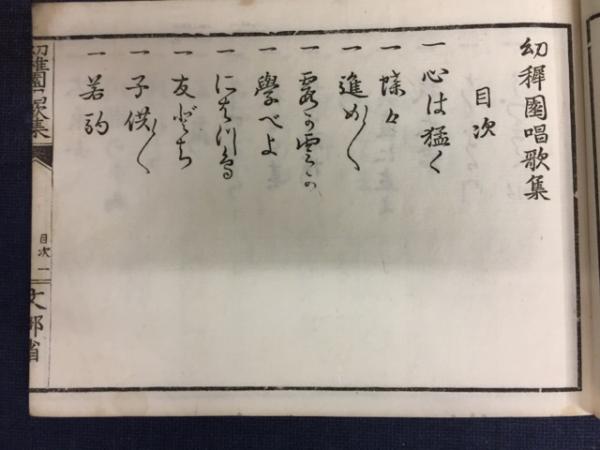 幼穉園唱歌集
目次
一 心は猛く
一 蝶々
一 進め〱
一 霞か雲か
一 學べよ
一 にはつ鳥
一 友どち
一 子供〱
一 若駒
幼稚園唱歌集
目次 一
文部省